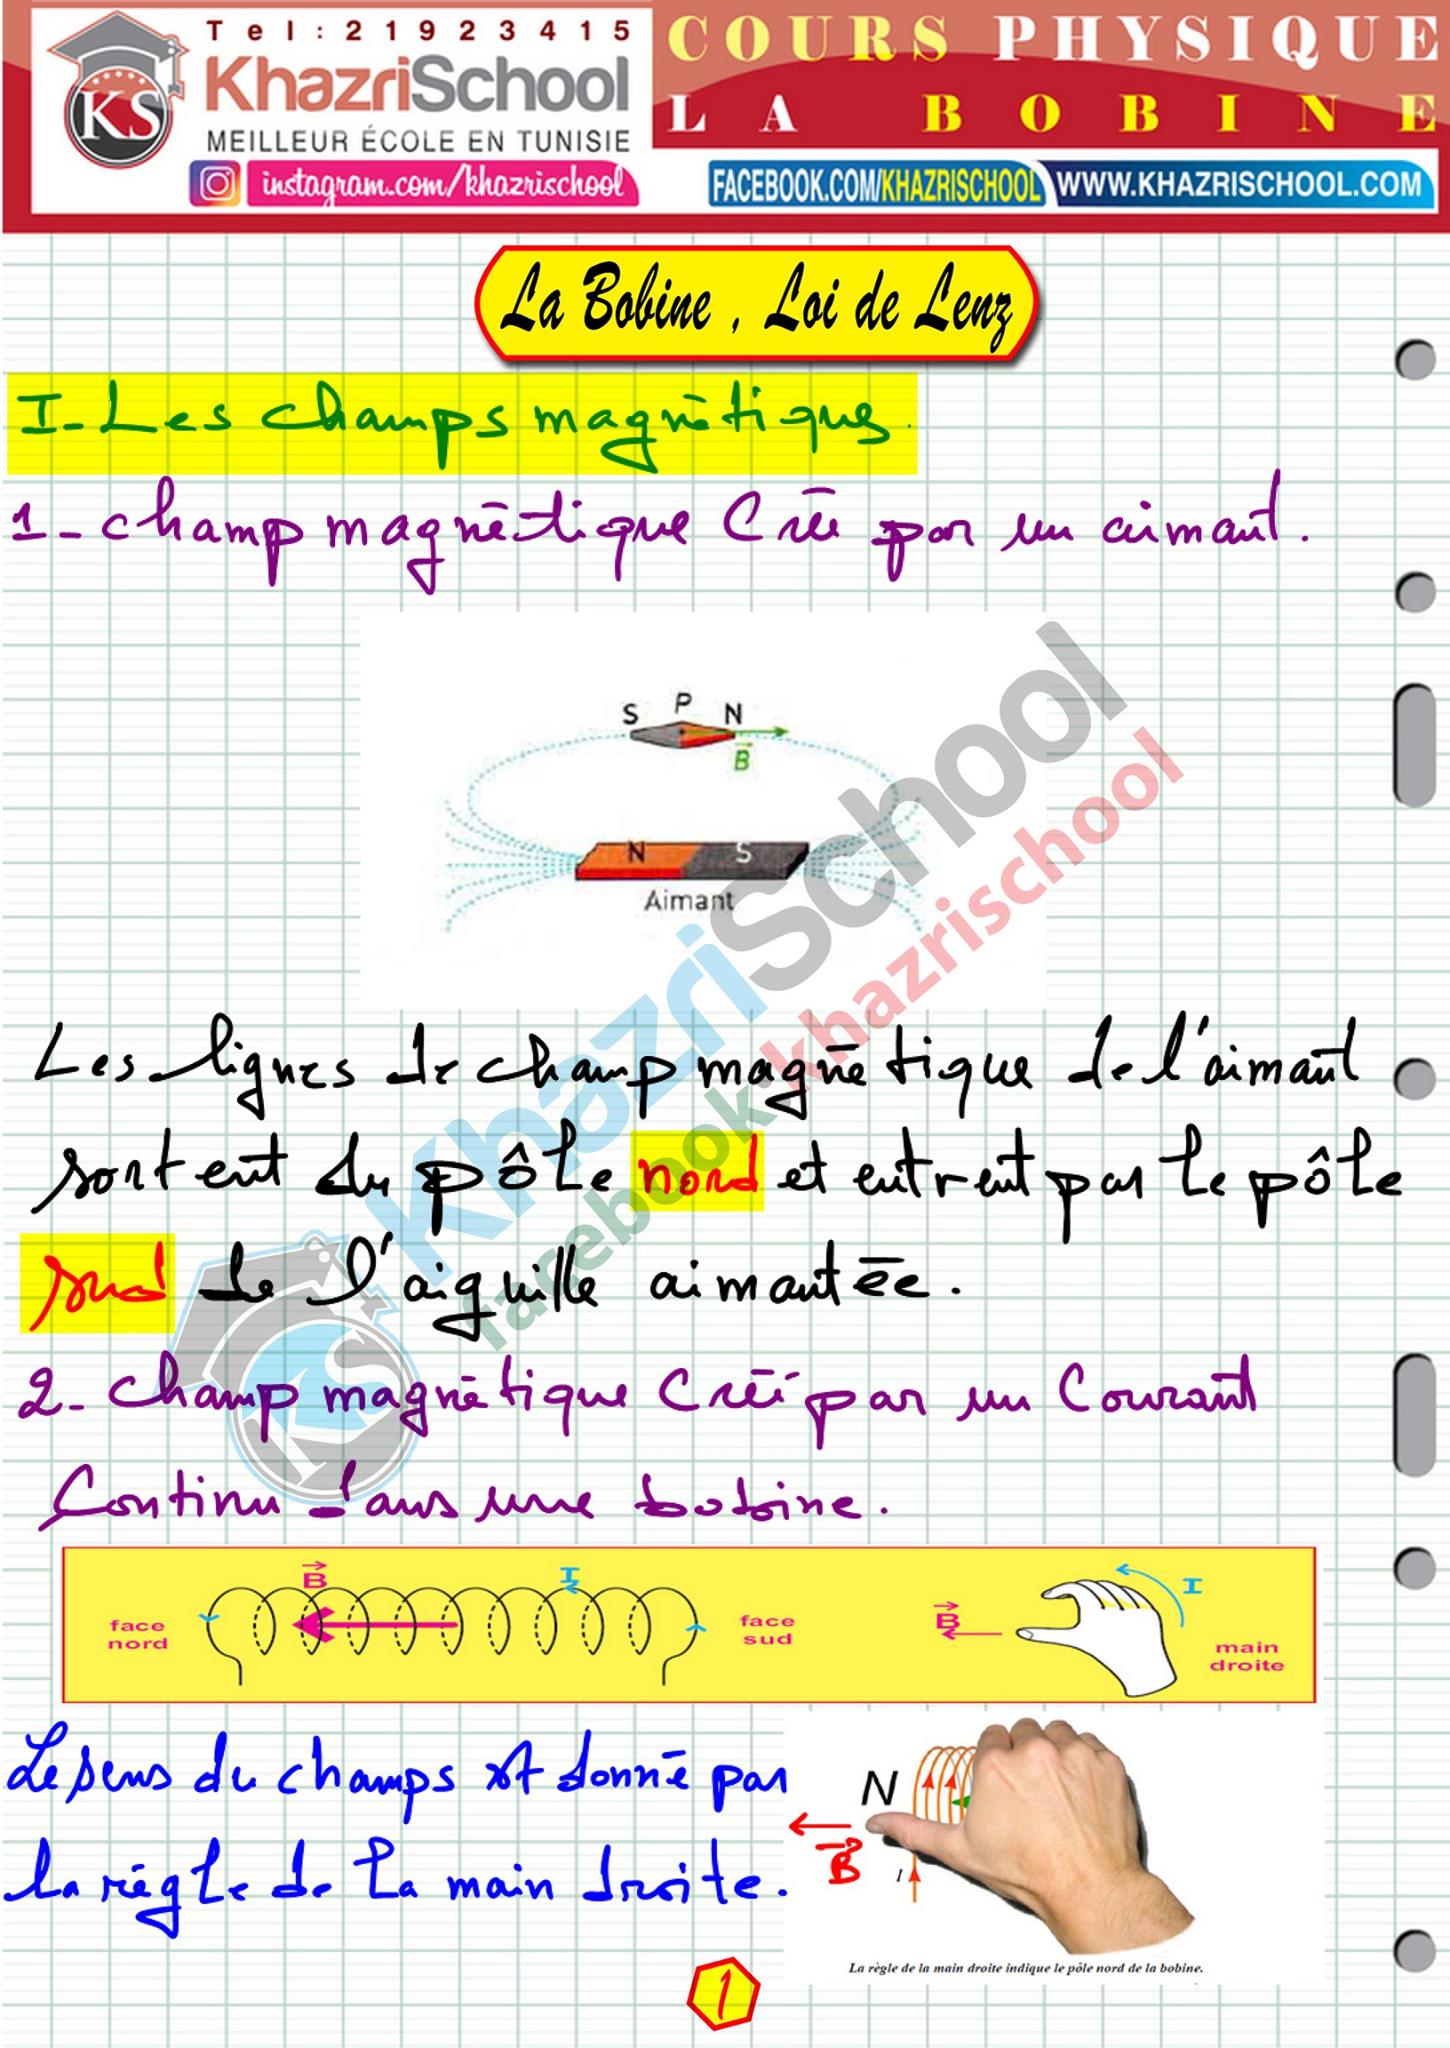 Tel: 21923415
KhazriSchool
MEILLEUR ÉCOLE EN TUNISIE
KS
instagram.com/khazrischool
COURS PHYSIQUE
LA BOBINE
FACEBOOK.COM/KHAZRISCHOOL
WWW.KHAZRISCHOOL.COM
La Bobine , Loi de Lenz
I- Les champs magnétiques.
1- champ magnétique Créé par un aimant.
S P N
B
N S
Aimant
Les lignes de champ magnétique de l'aimant
sortent du pôle nord et entrent par le pôle
sud de l'aiguille aimantée.
2- champ magnétique Créé par un Courant
Continu dans une bobine.
B I
face
nord
face
sud
B I
main
droite
Le sens du champs est donné par
la règle de la main droite.
N
B
I
La règle de la main droite indique le pôle nord de la bobine.
1
KhazriSchool
facebook.khazrischool
KS